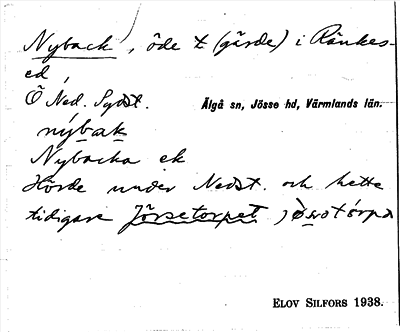 Nyback, öde t (gärde) i Ränkes-
ed,
Ö Ned. Sydst.
Älgå sn, Jösse hd, Värmlands län.
nýbak
Nybacka ek
Hörde under Nedst. och hette
tidigare Jörsetorpet
ELOV SILFORS 1938.